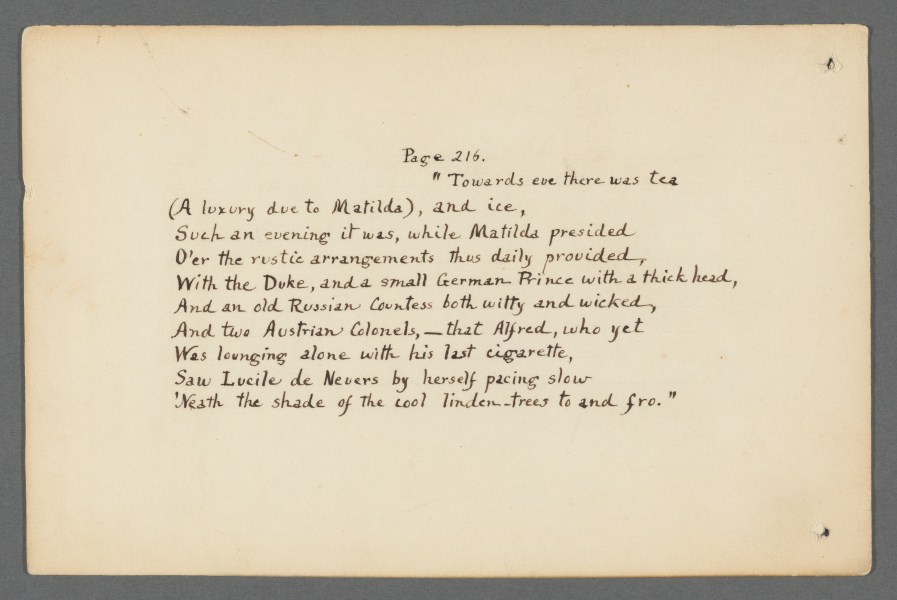 Page 216.
" Towards eve there was tea
(A luxury due to Matilda), and ice,
Such an evening it was, while Matilda presided
O'er the rustic arrangements thus daily provided,
With the Duke, and a small German Prince with a thick head,
And an old Russian Countess both witty and wicked,
And two Austrian Colonels,—that Alfred, who yet
Was lounging alone with his last cigarette,
Saw Lucile de Nevers by herself pacing slow
'Neath the shade of the cool linden-trees to and fro."